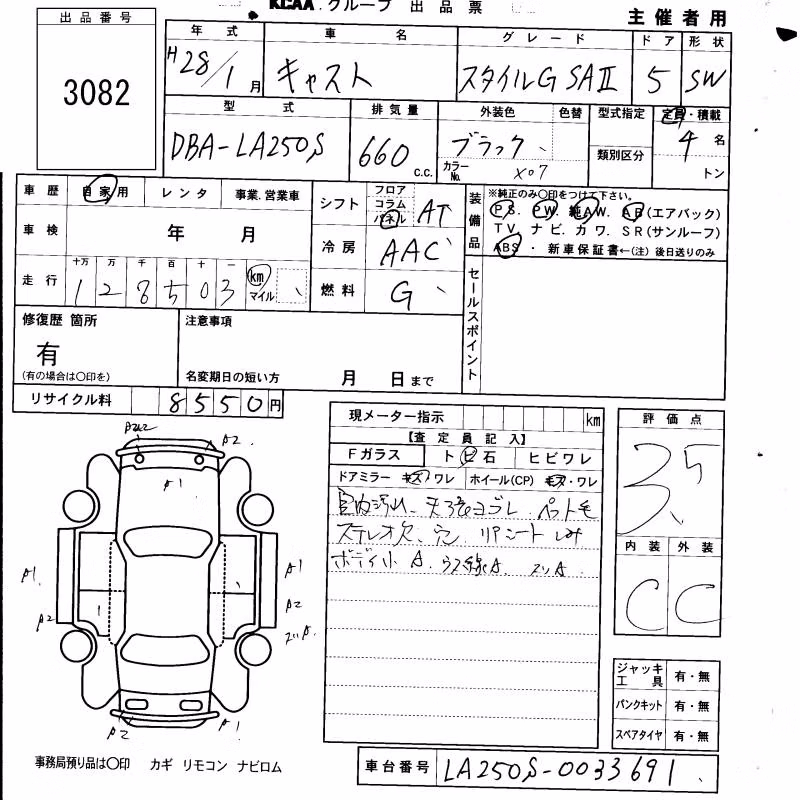 KCAA グループ 出品票
主催者用
出品番号
3082
年式 車名 グレード ドア 形状
H28/1月 キャスト スタイルG SAII 5 SW
型式 排気量 外装色 色替 型式指定 定員・積載
DBA-LA250S 660 c.c. ブラック 類別区分 4名
カラーNo. X07 トン
車歴 自家用 レンタ 事業.営業車
車検 年 月
走行 十万 万 千 百 十 一
128503 km マイル
シフト フロア コラム パネル AT
冷房 AAC
燃料 G
装備品 ※純正のみ〇印をつけて下さい。
PS. PW. 純AW. AB(エアバック)
TV. ナビ. カワ. SR(サンルーフ)
ABS ・ 新車保証書←(注) 後日送りのみ
セールスポイント
修復歴 箇所
有
(有の場合は〇印を)
注意事項
名変期日の短い方 月 日まで
リサイクル料 8550円
現メーター指示 km
【査定員記入】
Fガラス トビ石 ヒビワレ
ドアミラー キズ・ワレ ホイール(CP) キズ・ワレ
室内汚れ、天張ヨゴレ ペット毛
ステレオ欠、 リアシート しみ
ボディ小A.
評価点
3.5
内装 外装
C C
A2
A1
A1
A2
A1
A2
A2
A1
ジャッキ工具 有・無
パンクキット 有・無
スペアタイヤ 有・無
事務局預り品は〇印 カギ リモコン ナビロム
車台番号 LA250S-0033691